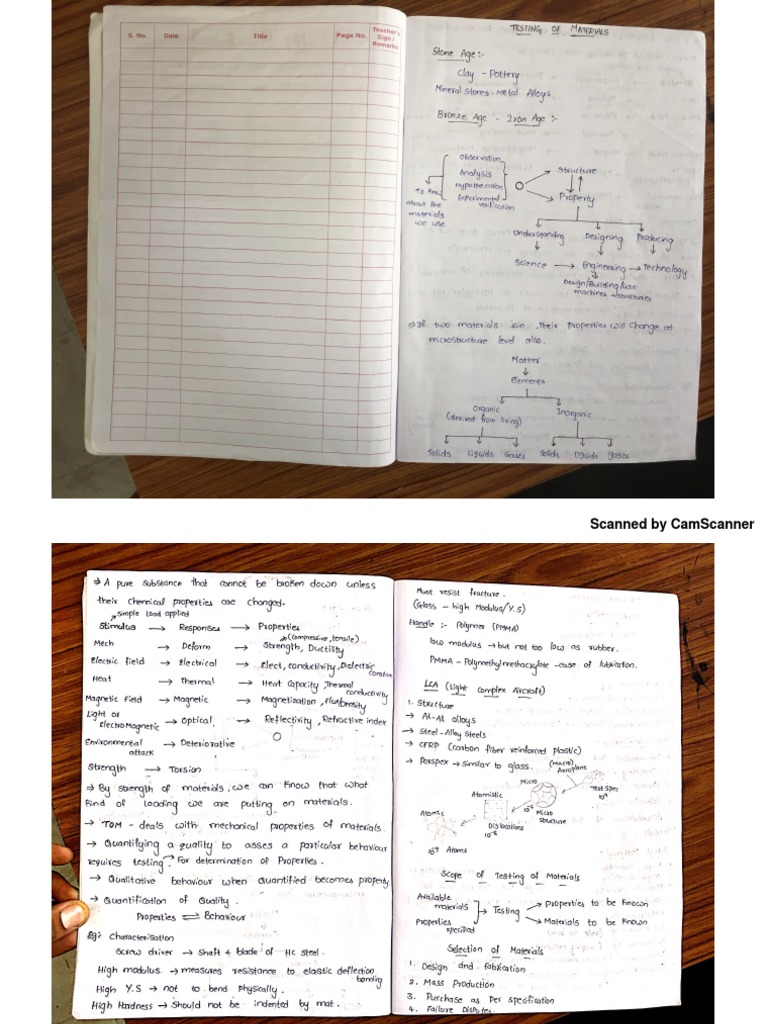 S. No. Date Title Page No. Teacher's Sign / Remarks
TESTING OF MATERIALS
Stone Age :-
Clay - Pottery
Mineral Stones - Metal Alloys.
Bronze Age - Iron Age :-
Observation
Analysis
Hypothecation
Experimental verification
To Know
about the
materials
we use
Structure
Property
Understanding Designing Producing
Science → Engineering → Technology
Design/Building/use
machines structures
⇒ If two materials join, their properties will change at
microstructure level also.
Matter
Elements
Organic Inorganic
(derived from living)
Solids Liquids Gases Solids Liquids Gases
Scanned by CamScanner
⇒ A pure substance that cannot be broken down unless
their chemical properties are changed.
simple load applied
Stimulus → Responses → Properties
(compressive, tensile)
Mech → Deform → Strength, Ductility
Electric field → Electrical → Elect, conductivity, Dielectric constant
Heat → Thermal → Heat Capacity, Thermal conductivity
Magnetic Field → Magnetic → Magnetization, Flux density
Light or
Electro Magnetic → Optical → Reflectivity, Refractive index
Environmental
attack → Deteriorative
Strength → Torsion
⇒ By strength of materials, we can know that what
kind of loading we are putting on materials.
→ TOM - deals with mechanical properties of materials.
→ Quantifying a quality to asses a particular behaviour
requires testing. → For determination of Properties.
→ Qualitative behaviour when quantified becomes property
→ Quantification of Quality.
Properties ⇌ Behaviour
Eg: Characterisation
Screw driver → shaft + blade of HC steel.
High modulus → measures resistance to elastic deflection
bending
High Y.S → not to bend physically.
High Hardness → should not be indented by mat.
Must resist fracture.
(Glass - high Modulus/Y.S)
Handle :- Polymer (PMMA)
low modulus → but not too low as rubber.
PMMA - Polymethylmethacrylate - ease of lubrication.
LCA (Light complex Aircraft)
1. Structure
→ Al-Al alloys
→ Steel-Alloy Steels
→ CFRP (carbon fiber reinforced plastic)
→ Perspex → similar to glass.
(MACRO)
Aeroplane
Micro
Test Spec
Atomistic
Micro
structure
Atomic
Dislocations
Atoms
Scope of Testing of Materials
Available
materials
Properties
specified
Testing
Properties to be known
Materials to be known
Selection of Materials
1. Design and fabrication
2. Mass Production
3. Purchase as Per specification
4. Failure Disputes